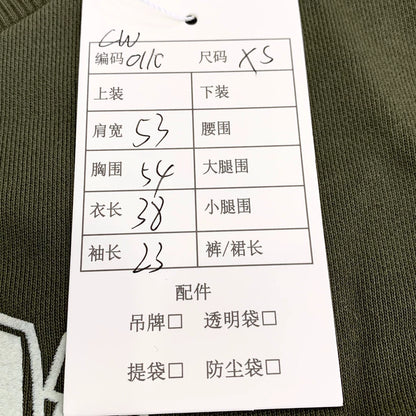 CW
编码 011C 尺码 XS
上装 下装
肩宽 53 腰围
胸围 54 大腿围
衣长 38 小腿围
袖长 23 裤/裙长
配件
吊牌□ 透明袋□
提袋□ 防尘袋□